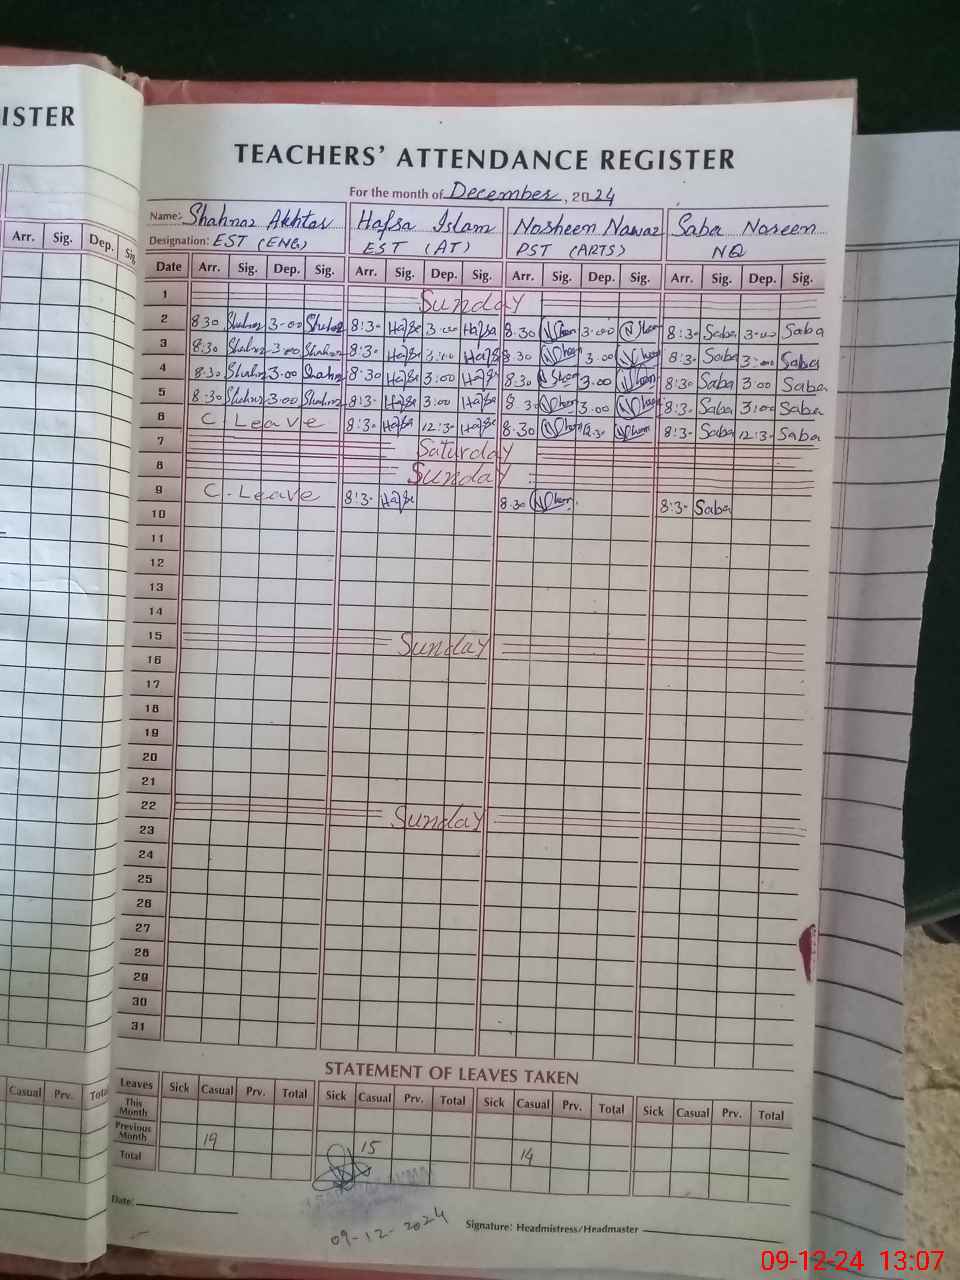 ISTER
TEACHERS' ATTENDANCE REGISTER
For the month of December, 2024
Name: Shahnaz Akhtar Hafsa Islam Nosheen Nawaz Saba Noreen
Designation: EST (ENG) EST (AT) PST (ARTS) NQ
Arr. Sig. Dep. Sig. Date Arr. Sig. Dep. Sig. Arr. Sig. Dep. Sig. Arr. Sig. Dep. Sig. Arr. Sig. Dep. Sig.
1 Sunday
2 830 Shahnz 3-00 Shahnz 8:3- Hafsa 3:00 Hafsa 8.30 3:00 8:3- Saba 3-00 Saba
3 8:30 Shahnz 3-00 Shahnz 8:3- Hafsa 3:00 Hafsa 8 30 3 00 8:3- Saba 3:00 Saba
4 8:30 Shahnz 3:00 Shahnz 8:30 Hafsa 3:00 Hafsa 8:30 3.00 8:30 Saba 3:00 Saba
5 8:30 Shahnz 3:00 Shahnz 8:3- Hafsa 3:00 Hafsa 8 3- 3.00 8:3- Saba 3:00 Saba
6 C. Leave 8:3- Hafsa 12:3- Hafsa 8.30 12.30 8:3- Saba 12:3- Saba
7 Saturday
8 Sunday
9 C. Leave 8:3- Hafsa 8.30 8:3- Saba
10
11
12
13
14
15 Sunday
16
17
18
19
20
21
22 Sunday
23
24
25
26
27
28
29
30
31
STATEMENT OF LEAVES TAKEN
Casual Prv. Total Leaves Sick Casual Prv. Total Sick Casual Prv. Total Sick Casual Prv. Total Sick Casual Prv. Total
This Month
Previous Month 19 15 14
Total
Date:
09-12-2024
Signature: Headmistress/Headmaster
09-12-24 13:07